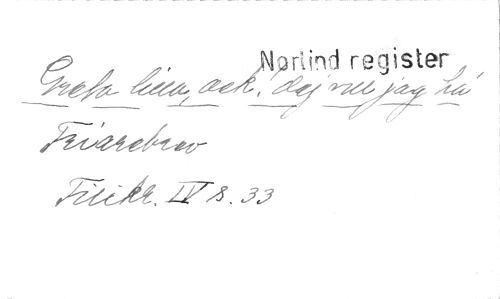 Norlind register
Greta lilla, ack! dej vill jag ha
Friarebrev
Filikr. IV s. 33